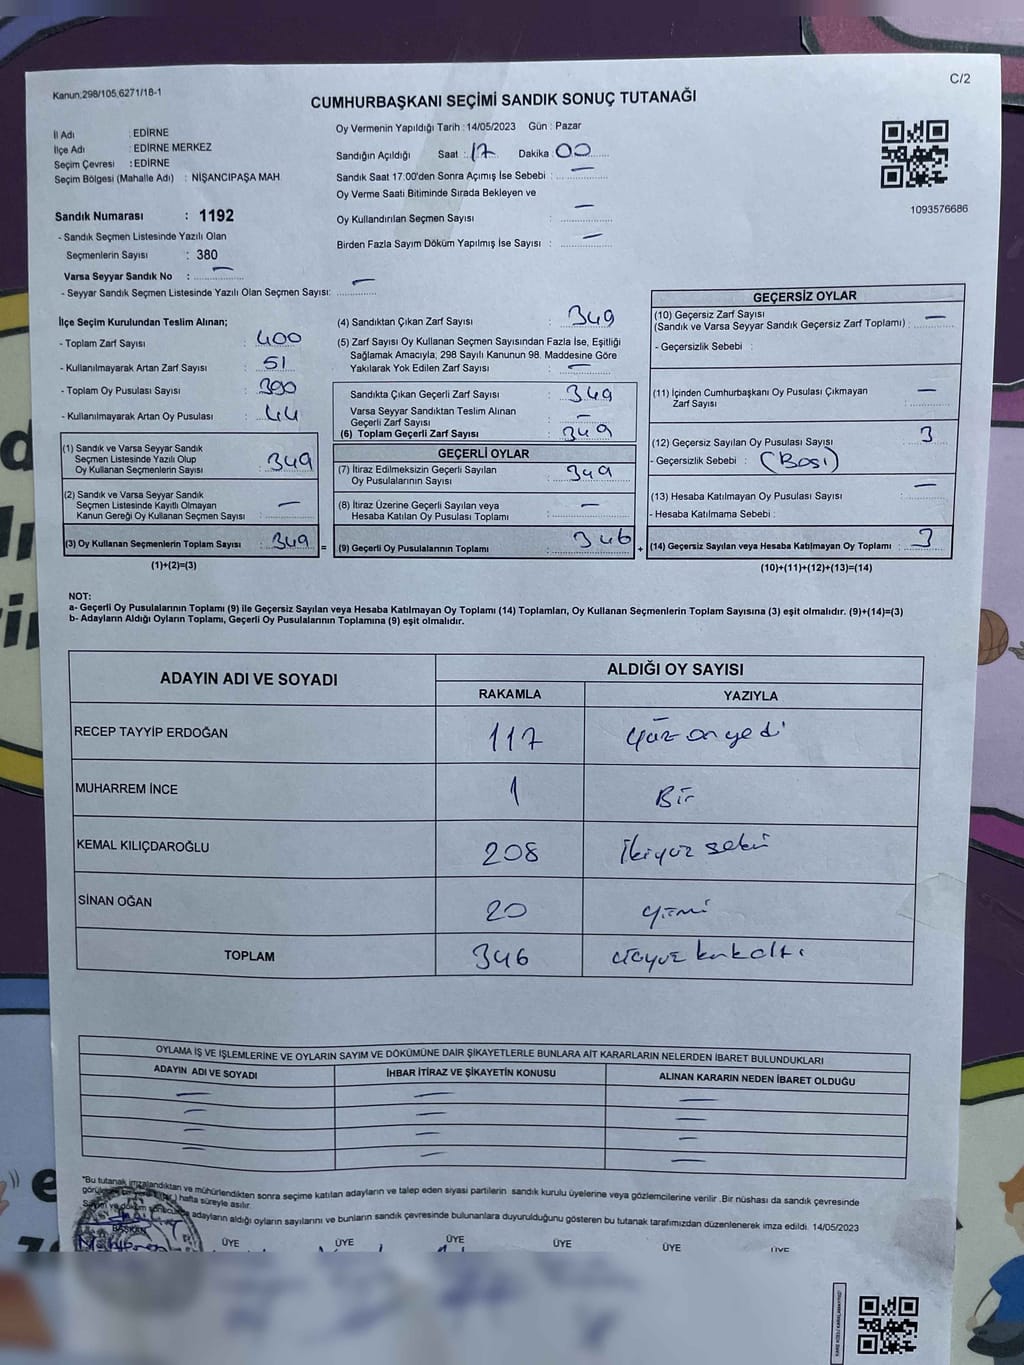 C/2
Kanun:298/105,6271/18-1
CUMHURBAŞKANI SEÇİMİ SANDIK SONUÇ TUTANAĞI
İl Adı : EDİRNE
İlçe Adı : EDİRNE MERKEZ
Seçim Çevresi : EDİRNE
Seçim Bölgesi (Mahalle Adı) : NİŞANCIPAŞA MAH
Sandık Numarası : 1192
- Sandık Seçmen Listesinde Yazılı Olan
Seçmenlerin Sayısı : 380
Varsa Seyyar Sandık No : —
- Seyyar Sandık Seçmen Listesinde Yazılı Olan Seçmen Sayısı: —
Oy Vermenin Yapıldığı Tarih : 14/05/2023 Gün : Pazar
Sandığın Açıldığı Saat : 17 Dakika 00
Sandık Saat 17:00'den Sonra Açımış İse Sebebi : —
Oy Verme Saati Bitiminde Sırada Bekleyen ve
Oy Kullandırılan Seçmen Sayısı : —
Birden Fazla Sayım Döküm Yapılmış İse Sayısı : —
1093576686
İlçe Seçim Kurulundan Teslim Alınan;
- Toplam Zarf Sayısı : 400
- Kullanılmayarak Artan Zarf Sayısı : 51
- Toplam Oy Pusulası Sayısı : 390
- Kullanılmayarak Artan Oy Pusulası : 44
(1) Sandık ve Varsa Seyyar Sandık
Seçmen Listesinde Yazılı Olup
Oy Kullanan Seçmenlerin Sayısı : 349
(2) Sandık ve Varsa Seyyar Sandık
Seçmen Listesinde Kayıtlı Olmayan
Kanun Gereği Oy Kullanan Seçmen Sayısı : —
(3) Oy Kullanan Seçmenlerin Toplam Sayısı : 349 =
(1)+(2)=(3)
(4) Sandıktan Çıkan Zarf Sayısı : 349
(5) Zarf Sayısı Oy Kullanan Seçmen Sayısından Fazla İse, Eşitliği
Sağlamak Amacıyla; 298 Sayılı Kanunun 98. Maddesine Göre
Yakılarak Yok Edilen Zarf Sayısı : —
Sandıkta Çıkan Geçerli Zarf Sayısı : 349
Varsa Seyyar Sandıktan Teslim Alınan
Geçerli Zarf Sayısı : —
(6) Toplam Geçerli Zarf Sayısı : 349
GEÇERLİ OYLAR
(7) İtiraz Edilmeksizin Geçerli Sayılan
Oy Pusulalarının Sayısı : 349
(8) İtiraz Üzerine Geçerli Sayılan veya
Hesaba Katılan Oy Pusulası Toplamı : —
(9) Geçerli Oy Pusulalarının Toplamı : 346 +
GEÇERSİZ OYLAR
(10) Geçersiz Zarf Sayısı
(Sandık ve Varsa Seyyar Sandık Geçersiz Zarf Toplamı) : —
- Geçersizlik Sebebi :
(11) İçinden Cumhurbaşkanı Oy Pusulası Çıkmayan
Zarf Sayısı : —
(12) Geçersiz Sayılan Oy Pusulası Sayısı : 3
- Geçersizlik Sebebi : (Boş)
(13) Hesaba Katılmayan Oy Pusulası Sayısı : —
- Hesaba Katılmama Sebebi :
(14) Geçersiz Sayılan veya Hesaba Katılmayan Oy Toplamı : 3
(10)+(11)+(12)+(13)=(14)
NOT:
a- Geçerli Oy Pusulalarının Toplamı (9) ile Geçersiz Sayılan veya Hesaba Katılmayan Oy Toplamı (14) Toplamları, Oy Kullanan Seçmenlerin Toplam Sayısına (3) eşit olmalıdır. (9)+(14)=(3)
b- Adayların Aldığı Oyların Toplamı, Geçerli Oy Pusulalarının Toplamına (9) eşit olmalıdır.
ADAYIN ADI VE SOYADI
ALDIĞI OY SAYISI
RAKAMLA YAZIYLA
RECEP TAYYİP ERDOĞAN 117 yüz on yedi
MUHARREM İNCE 1 Bir
KEMAL KILIÇDAROĞLU 208 İkiyüz sekiz
SİNAN OĞAN 20 yirmi
TOPLAM 346 üçyüz kırkaltı
OYLAMA İŞ VE İŞLEMLERİNE VE OYLARIN SAYIM VE DÖKÜMÜNE DAİR ŞİKAYETLERLE BUNLARA AİT KARARLARIN NELERDEN İBARET BULUNDUKLARI
ADAYIN ADI VE SOYADI İHBAR İTİRAZ VE ŞİKAYETİN KONUSU ALINAN KARARIN NEDEN İBARET OLDUĞU
"Bu tutanak imzalandıktan ve mühürlendikten sonra seçime katılan adayların ve talep eden siyasi partilerin sandık kurulu üyelerine veya gözlemcilerine verilir .Bir nüshası da sandık çevresinde
hafta süreyle asılır.
adayların aldığı oyların sayılarını ve bunların sandık çevresinde bulunanlara duyurulduğunu gösteren bu tutanak tarafımızdan düzenlenerek imza edildi. 14/05/2023
BAŞKAN ÜYE ÜYE ÜYE ÜYE ÜYE ÜYE